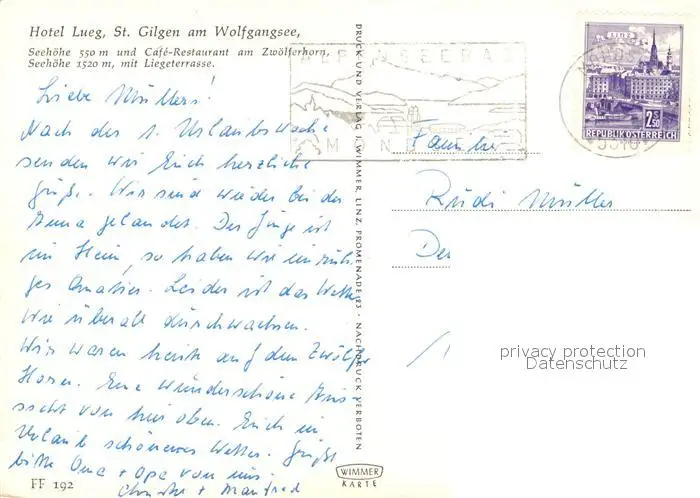 Hotel Lueg, St. Gilgen am Wolfgangsee,
Seehöhe 550 m und Café-Restaurant am Zwölferhorn,
Seehöhe 1520 m, mit Liegeterrasse.
Liebe Müllers!
Nach der 1. Urlaubswoche
senden wir Euch herzliche
Grüße. Wir sind wieder bei der
Anna gelandet. Der Junge ist
im Heim, so haben wir ein ruhi-
ges Quartier. Leider ist das Wetter
wie überall durchwachsen.
Wir waren heute auf dem Zwölfer
Horn. Eine wunderschöne Aus-
sicht von hier oben. Euch im
Urlaub schöneres Wetter. Grüßt
bitte Oma + Opa von uns
Christa + Manfred
FF 192
DRUCK UND VERLAG J. WIMMER, LINZ, PROMENADE 23 · NACHDRUCK VERBOTEN
WIMMER
KARTE
LINZ
2.50
REPUBLIK ÖSTERREICH
Familie
Rudi Müller
privacy protection
Datenschutz